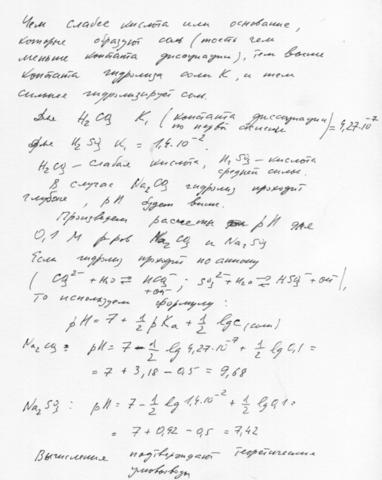 Чем слабее кислота или основание,
которые образуют соль (тоесть чем
меньше константа диссоциации), тем выше
константа гидролиза соли K, и тем
сильнее гидролизируется соль.
Для H₂CO₃ K₁ (константа диссоциации по первой ступени) = 4,27·10⁻⁷
Для H₂SO₃ K₁ = 1,4·10⁻².
H₂CO₃ – слабая кислота, H₂SO₃ – кислота
средней силы.
В случае Na₂CO₃ гидролиз проходит
глубже, pH будет выше.
Произведем расчеты pH для
0,1 M р-ров Na₂CO₃ и Na₂SO₃
Если гидролиз проходит по аниону
(CO₃²⁻ + H₂O ⇄ HCO₃⁻ + OH⁻; SO₃²⁻ + H₂O ⇄ HSO₃⁻ + OH⁻),
то используем формулу:
pH = 7 + 1/2 pKa + 1/2 lg C (соли)
Na₂CO₃: pH = 7 – 1/2 lg 4,27·10⁻⁷ + 1/2 lg 0,1 =
= 7 + 3,18 – 0,5 = 9,68
Na₂SO₃: pH = 7 – 1/2 lg 1,4·10⁻² + 1/2 lg 0,1 =
= 7 + 0,92 – 0,5 = 7,42
Вычисления подтверждают теоретические
умовыводы